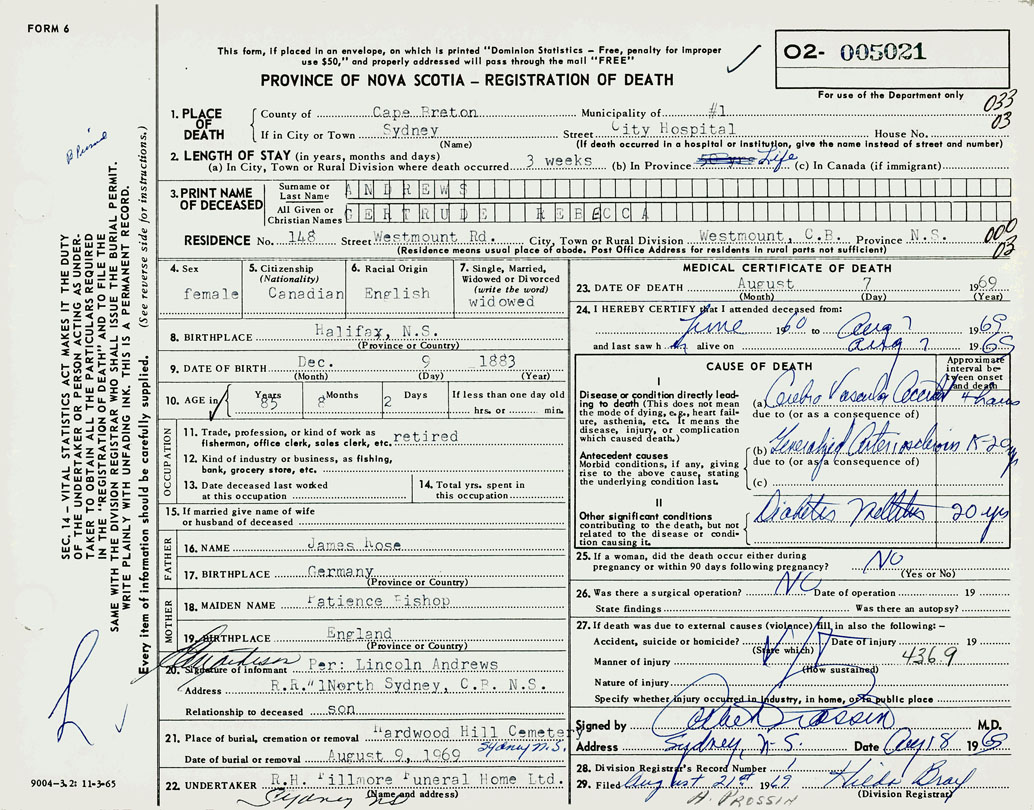 FORM 6
This form, if placed in an envelope, on which is printed "Dominion Statistics – Free, penalty for improper
use $50," and properly addressed will pass through the mail "FREE"
O2- 005021
PROVINCE OF NOVA SCOTIA – REGISTRATION OF DEATH
For use of the Department only
033
03
1. PLACE OF DEATH
County of Cape Breton Municipality of #1
If in City or Town Sydney Street City Hospital House No.
(Name) (If death occurred in a hospital or institution, give the name instead of street and number)
2. LENGTH OF STAY (in years, months and days)
(a) In City, Town or Rural Division where death occurred 3 weeks (b) In Province 50 yrs Life (c) In Canada (if immigrant)
3. PRINT NAME OF DECEASED
Surname or Last Name ANDREWS
All Given or Christian Names GERTRUDE REBECCA
RESIDENCE No. 148 Street Westmount Rd. City, Town or Rural Division Westmount, C.B. Province N.S.
(Residence means usual place of abode. Post Office Address for residents in rural parts not sufficient)
000
03
4. Sex
female
5. Citizenship
(Nationality)
Canadian
6. Racial Origin
English
7. Single, Married,
Widowed or Divorced
(write the word)
widowed
8. BIRTHPLACE Halifax, N.S.
(Province or Country)
9. DATE OF BIRTH Dec. 9 1883
(Month) (Day) (Year)
10. AGE in Years 85 8 Months 2 Days If less than one day old
hrs. or min.
OCCUPATION
11. Trade, profession, or kind of work as
fisherman, office clerk, sales clerk, etc. retired
12. Kind of industry or business, as fishing,
bank, grocery store, etc.
13. Date deceased last worked
at this occupation
14. Total yrs. spent in
this occupation
15. If married give name of wife
or husband of deceased
FATHER
16. NAME James Rose
17. BIRTHPLACE Germany
(Province or Country)
MOTHER
18. MAIDEN NAME Patience Bishop
19. BIRTHPLACE England
(Province or Country)
20. Signature of informant Per: Lincoln Andrews
Address R.R. 1 North Sydney, C.B. N.S.
Relationship to deceased son
21. Place of burial, cremation or removal Hardwood Hill Cemetery
Sydney N.S.
Date of burial or removal August 9, 1969
22. UNDERTAKER R.H. Fillmore Funeral Home Ltd.
(Name and address)
Sydney NS
MEDICAL CERTIFICATE OF DEATH
23. DATE OF DEATH August 7 1969
(Month) (Day) (Year)
24. I HEREBY CERTIFY that I attended deceased from:
June 1960 to Aug 7 1969
and last saw h er alive on Aug 7 1969
CAUSE OF DEATH
Approximate interval between onset and death
I
Disease or condition directly leading to death (This does not mean the mode of dying, e.g., heart failure, asthenia, etc. It means the disease, injury, or complication which caused death.)
(a) Cerebro Vascular Accident 4 hours
due to (or as a consequence of)
Antecedent causes
Morbid conditions, if any, giving rise to the above cause, stating the underlying condition last.
(b) Generalized Arteriosclerosis 15-20 yrs
due to (or as a consequence of)
(c)
II
Other significant conditions
contributing to the death, but not related to the disease or condition causing it.
Diabetis Mellitus 20 yrs
25. If a woman, did the death occur either during
pregnancy or within 90 days following pregnancy? NO
(Yes or No)
26. Was there a surgical operation? NO Date of operation 19
State findings Was there an autopsy?
27. If death was due to external causes (violence) fill in also the following: –
Accident, suicide or homicide? Date of injury 19
(State which)
436.9
Manner of injury
(How sustained)
Nature of injury
Specify whether injury occurred in industry, in home, or in public place
Signed by M.D.
Address Sydney, N.S. Date Aug 8 1969
28. Division Registrar's Record Number
29. Filed August 21st 1969 Hilda Bray
(Division Registrar)
H. PROSSIN
SEC. 14 – VITAL STATISTICS ACT MAKES IT THE DUTY
OF THE UNDERTAKER OR PERSON ACTING AS UNDER-
TAKER TO OBTAIN ALL THE PARTICULARS REQUIRED
IN THE "REGISTRATION OF DEATH" AND TO FILE THE
SAME WITH THE DIVISION REGISTRAR WHO SHALL ISSUE THE BURIAL PERMIT.
WRITE PLAINLY WITH UNFADING INK. THIS IS A PERMANENT RECORD.
Every item of information should be carefully supplied. (See reverse side for instructions.)
9004–3.2: 11-3-65